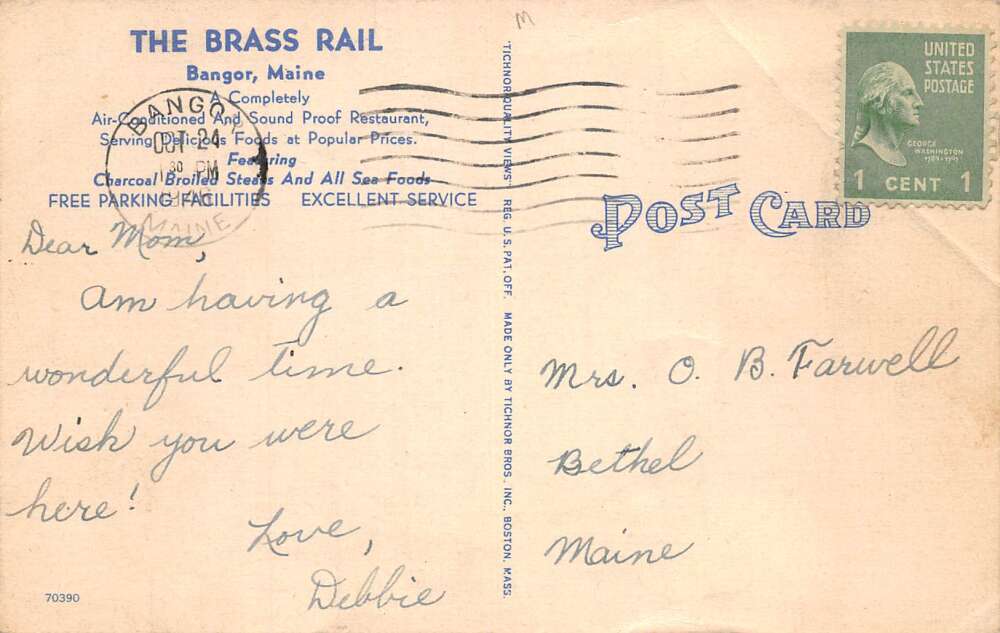 THE BRASS RAIL
Bangor, Maine
A Completely
Air-Conditioned And Sound Proof Restaurant,
Serving Delicious Foods at Popular Prices.
Featuring
Charcoal Broiled Steaks And All Sea Foods
FREE PARKING FACILITIES EXCELLENT SERVICE
BANGOR
OCT 24
30 PM
MAINE
Dear Mom,
Am having a
wonderful time.
Wish you were
here!
Love,
Debbie
70390
"TICHNOR QUALITY VIEWS" REG. U. S. PAT. OFF. MADE ONLY BY TICHNOR BROS. INC., BOSTON, MASS.
M
UNITED
STATES
POSTAGE
GEORGE
WASHINGTON
1789-1797
1 CENT 1
POST CARD
Mrs. O. B. Farwell
Bethel
Maine